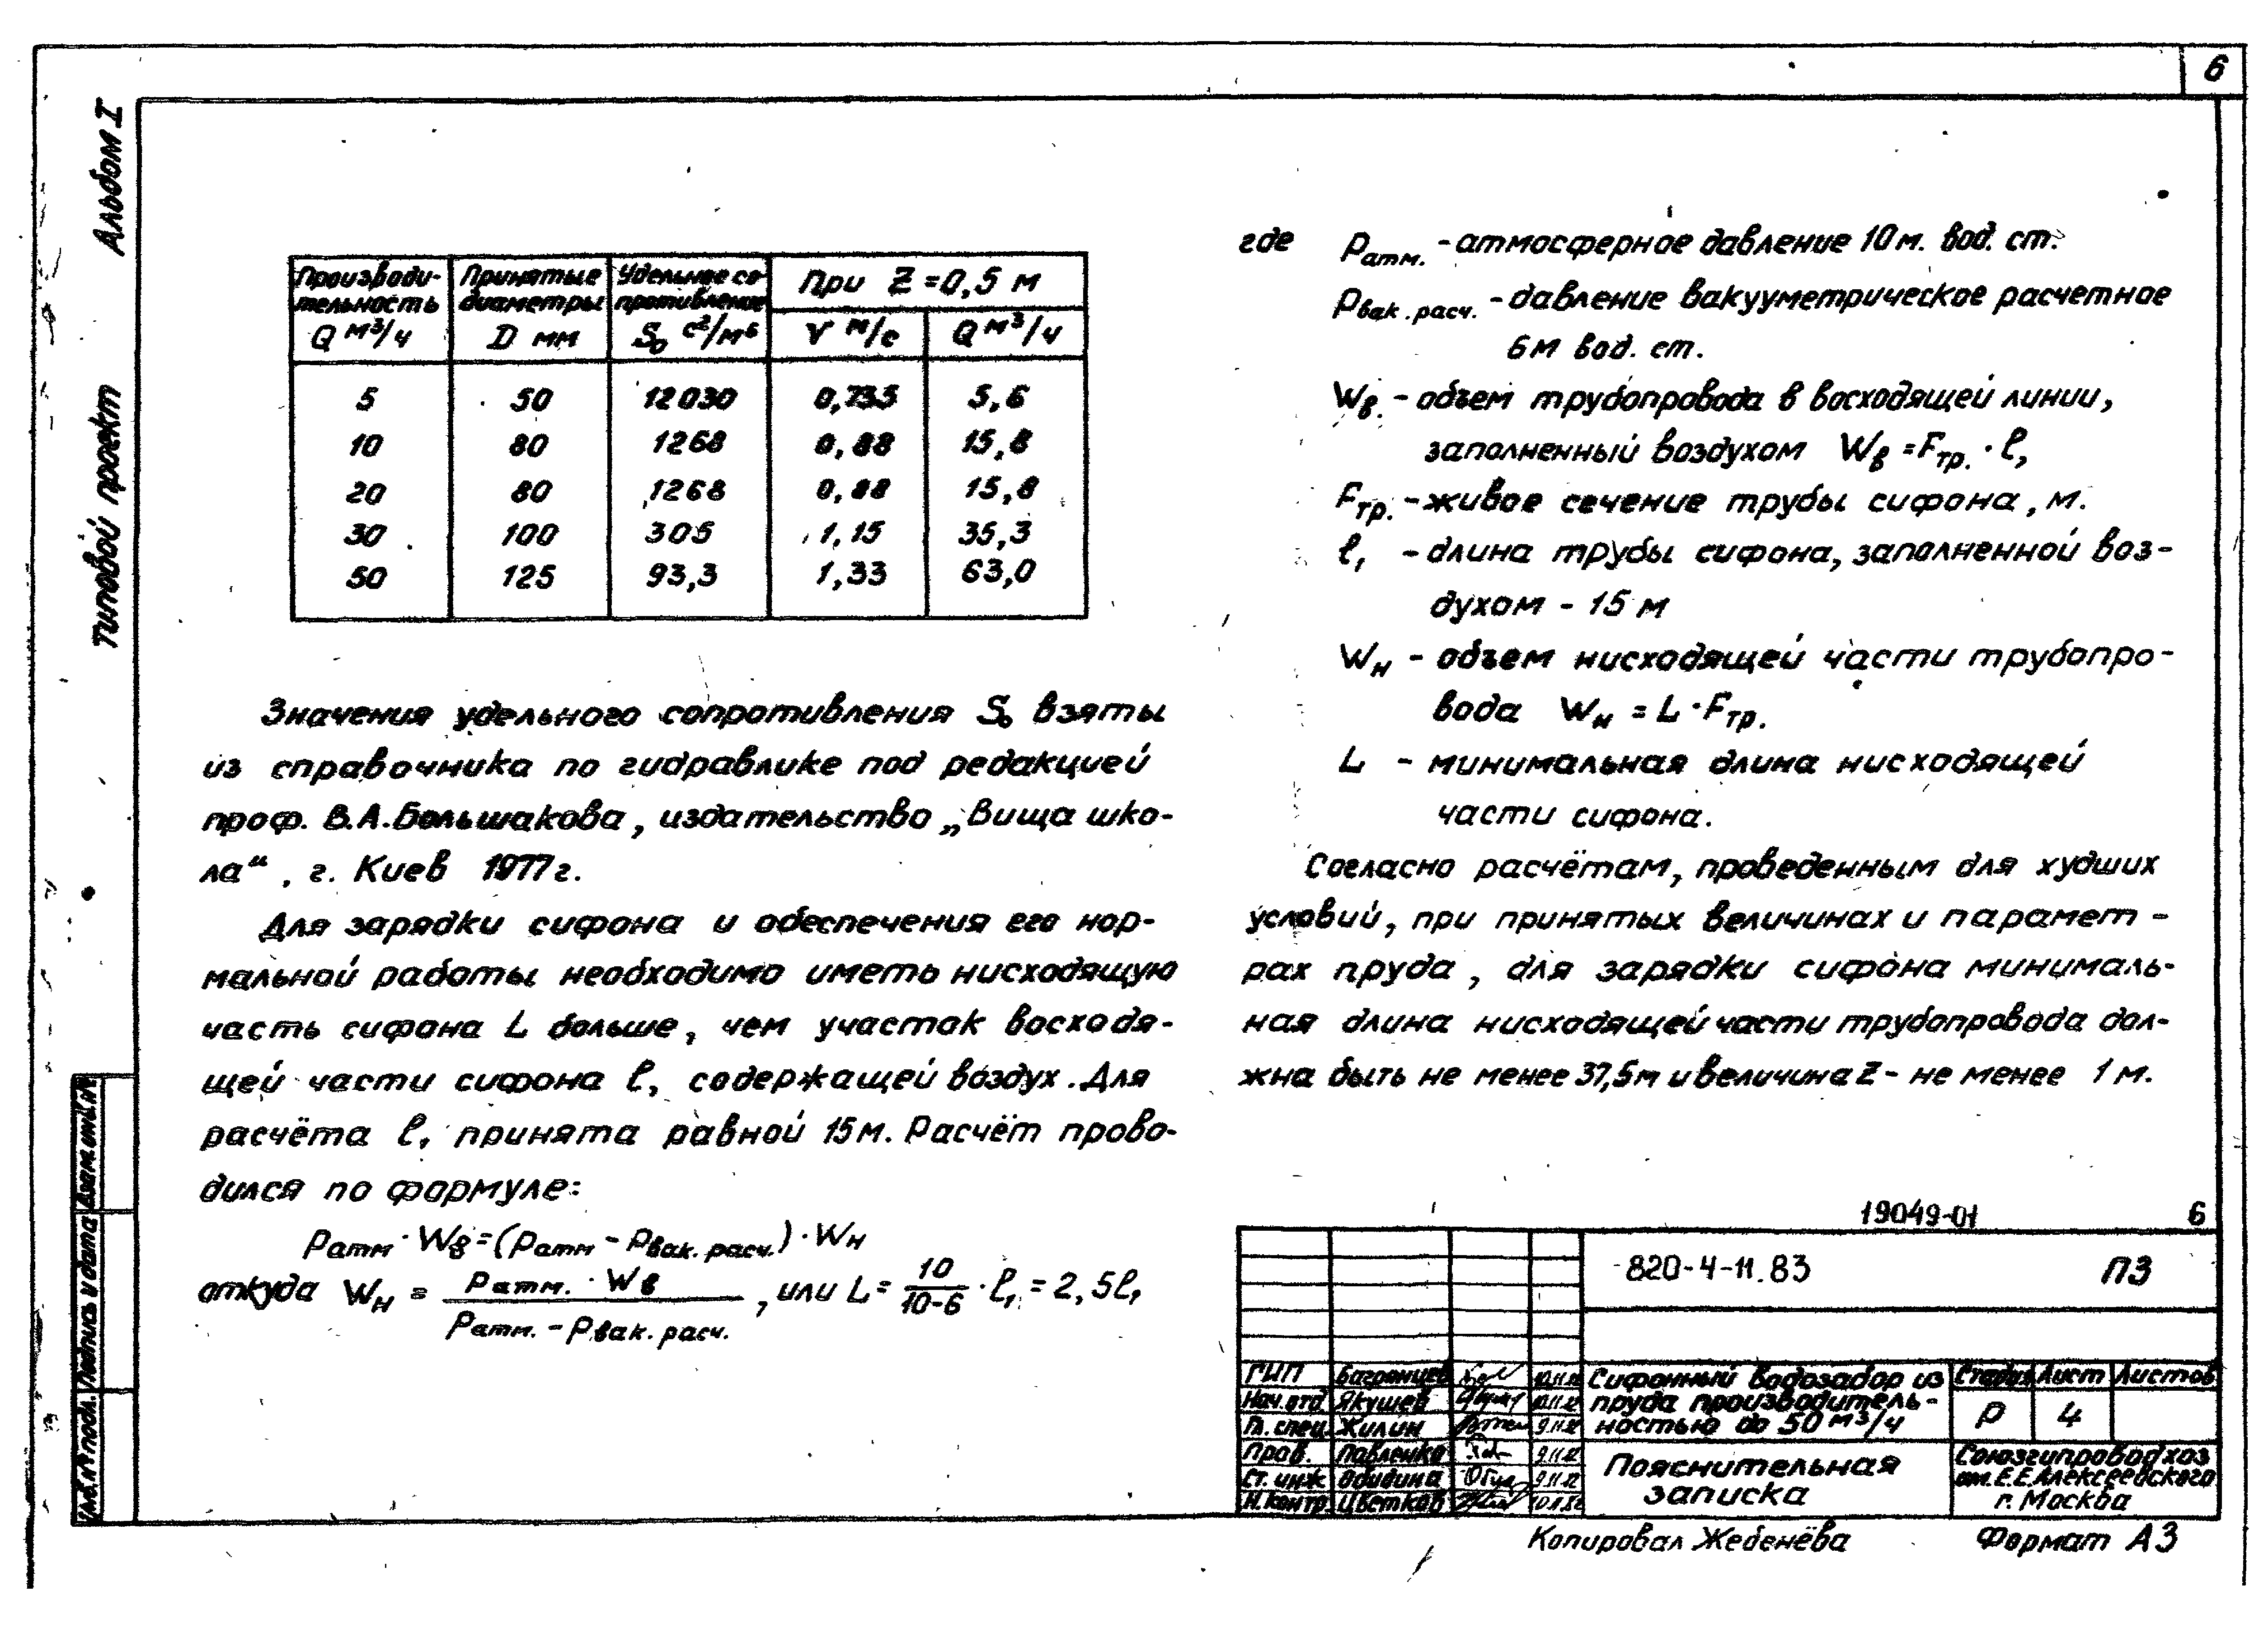 6
Альбом I
Типовой проект
Производи- Принятые Удельное со- При Z = 0,5 м
тельность диаметры противление
Q м³/ч D мм S₀ с²/м⁶ V м/с Q м³/ч
5 50 12030 0,735 5,6
10 80 1268 0,88 15,8
20 80 1268 0,88 15,8
30 100 305 1,15 35,3
50 125 93,3 1,33 63,0
Значения удельного сопротивления S₀ взяты
из справочника по гидравлике под редакцией
проф. В.А.Большакова, издательство „Вища шко-
ла“, г. Киев 1977г.
Для зарядки сифона и обеспечения его нор-
мальной работы необходимо иметь нисходящую
часть сифона L больше, чем участок восходя-
щей части сифона ℓ₁ содержащей воздух. Для
расчёта ℓ₁ принята равной 15м. Расчёт прово-
дился по формуле:
Pатм · Wв = (Pатм – Pвак. расч.) · Wн
откуда Wн = Pатм. · Wв / Pатм. – Pвак. расч. , или L = 10/10-6 · ℓ₁ = 2,5ℓ₁
где Pатм. – атмосферное давление 10м. вод. ст.
Pвак. расч. – давление вакууметрическое расчетное
6м вод. ст.
Wв. – объем трубопровода в восходящей линии,
заполненный воздухом Wв = Fтр. · ℓ₁
Fтр. – живое сечение трубы сифона, м.
ℓ₁ – длина трубы сифона, заполненной воз-
духом – 15 м
Wн – объем нисходящей части трубопро-
вода Wн = L · Fтр.
L – минимальная длина нисходящей
части сифона.
Согласно расчётам, проведенным для худших
условий, при принятых величинах и парамет-
рах пруда, для зарядки сифона минималь-
ная длина нисходящей части трубопровода дол-
жна быть не менее 37,5м и величина Z – не менее 1 м.
19049-01 6
820-4-11.83 ПЗ
ГИП Багронцев 10.11.82
Нач.отд. Якушев 10.11.82
Гл. спец. Жилин 9.11.82
Пров. Павленко 9.11.82
Ст. инж 9.11.82
Н.контр. Цветков
Сифонный водозабор из
пруда производитель-
ностью до 50 м³/ч
Стадия Лист Листов
Р 4
Пояснительная
записка
Союзгипроводхоз
им. Е.Е.Алексеевского
г. Москва
Инв.№ подл. Подпись и дата Взам.инв.№
Копировал Жебенёва Формат А3